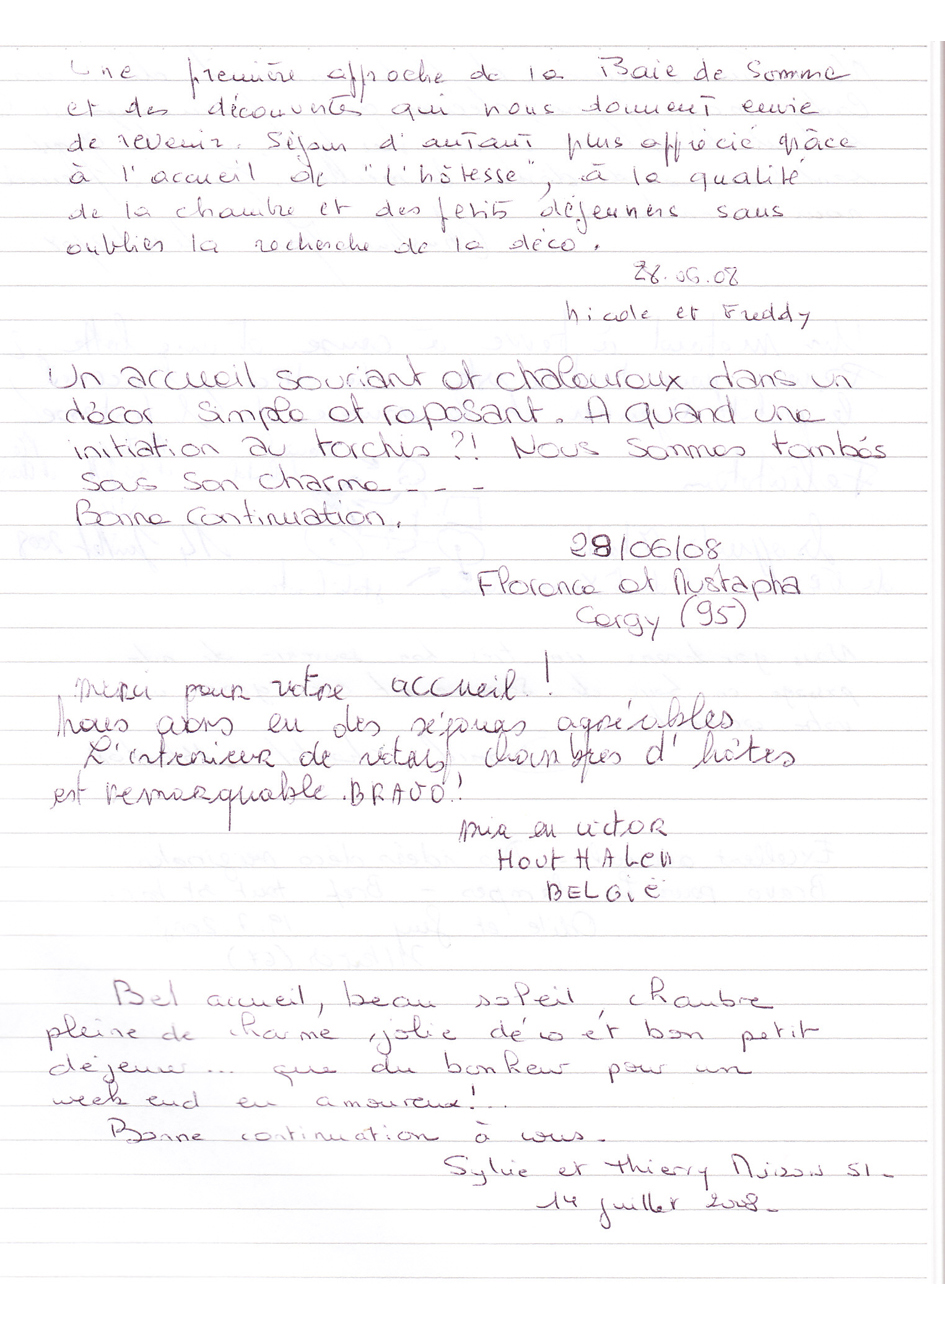 Une première approche de la Baie de Somme
et des découvertes qui nous donnent envie
de revenir. Séjour d'autant plus apprécié grâce
à l'accueil de "l'hôtesse", à la qualité
de la chambre et des petits déjeuners sans
oublier la recherche de la déco.
28.06.08
Nicole et Freddy
Un accueil souriant et chaleureux dans un
décor simple et reposant. A quand une
initiation au torchis ?! Nous sommes tombés
sous son charme - - -
Bonne continuation.
29/06/08
Florence et Mustapha
Cergy (95)
Merci pour votre accueil !
Nous avons eu des séjours agréables
L'interieur de votre chambres d'hôtes
est remarquable. BRAVO !
Mia en victor
HoutHALen
BELGiË
Bel accueil, beau soleil, chambre
pleine de charme, jolie déco et bon petit
déjeuner... que du bonheur pour un
week end en amoureux !..
Bonne continuation à vous.
Sylvie et Thierry 51-
14 juillet 2008-